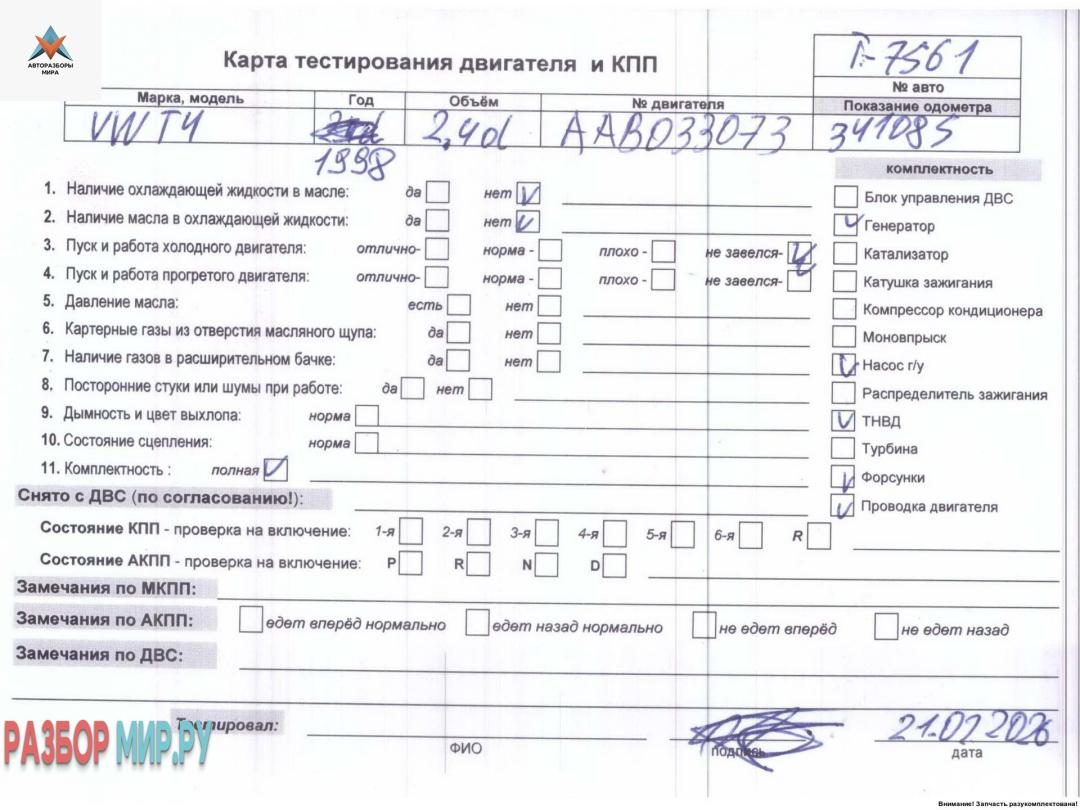 АВТОРАЗБОРЫ
МИРА
Карта тестирования двигателя и КПП
Т-7561
№ авто
Марка, модель Год Объём № двигателя Показание одометра
VWT4 2,4d AAB033073 341085
1998
комплектность
1. Наличие охлаждающей жидкости в масле: да нет V
2. Наличие масла в охлаждающей жидкости: да нет V
3. Пуск и работа холодного двигателя: отлично- норма - плохо - не завелся- V
4. Пуск и работа прогретого двигателя: отлично- норма - плохо - не завелся-
5. Давление масла: есть нет
6. Картерные газы из отверстия масляного щупа: да нет
7. Наличие газов в расширительном бачке: да нет
8. Посторонние стуки или шумы при работе: да нет
9. Дымность и цвет выхлопа: норма
10. Состояние сцепления: норма
11. Комплектность : полная V
Блок управления ДВС
V Генератор
Катализатор
Катушка зажигания
Компрессор кондиционера
Моновпрыск
V Насос г/у
Распределитель зажигания
V ТНВД
Турбина
V Форсунки
V Проводка двигателя
Снято с ДВС (по согласованию!):
Состояние КПП - проверка на включение: 1-я 2-я 3-я 4-я 5-я 6-я R
Состояние АКПП - проверка на включение: P R N D
Замечания по МКПП:
Замечания по АКПП: едет вперёд нормально едет назад нормально не едет вперёд не едет назад
Замечания по ДВС:
Тестировал:
ФИО подпись дата
РАЗБОР МИР.РУ
Внимание! Запчасть разукомплектована!